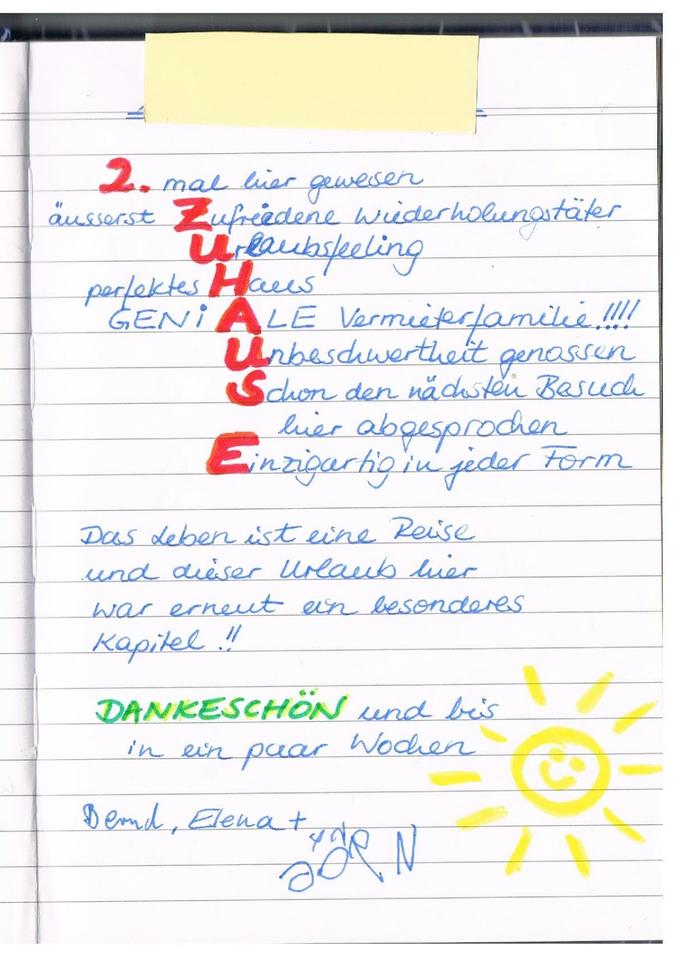 2. mal hier gewesen
äusserst Zufriedene Wiederholungstäter
Urlaubsfeeling
perfektes Haus
GENiALE Vermieterfamilie!!!!
Unbeschwertheit genossen
Schon den nächsten Besuch
hier abgesprochen
Einzigartig in jeder Form
Das Leben ist eine Reise
und dieser Urlaub hier
war erneut ein besonderes
Kapitel!!
DANKESCHÖN und bis
in ein paar Wochen
Bernd, Elena +
JÖRN